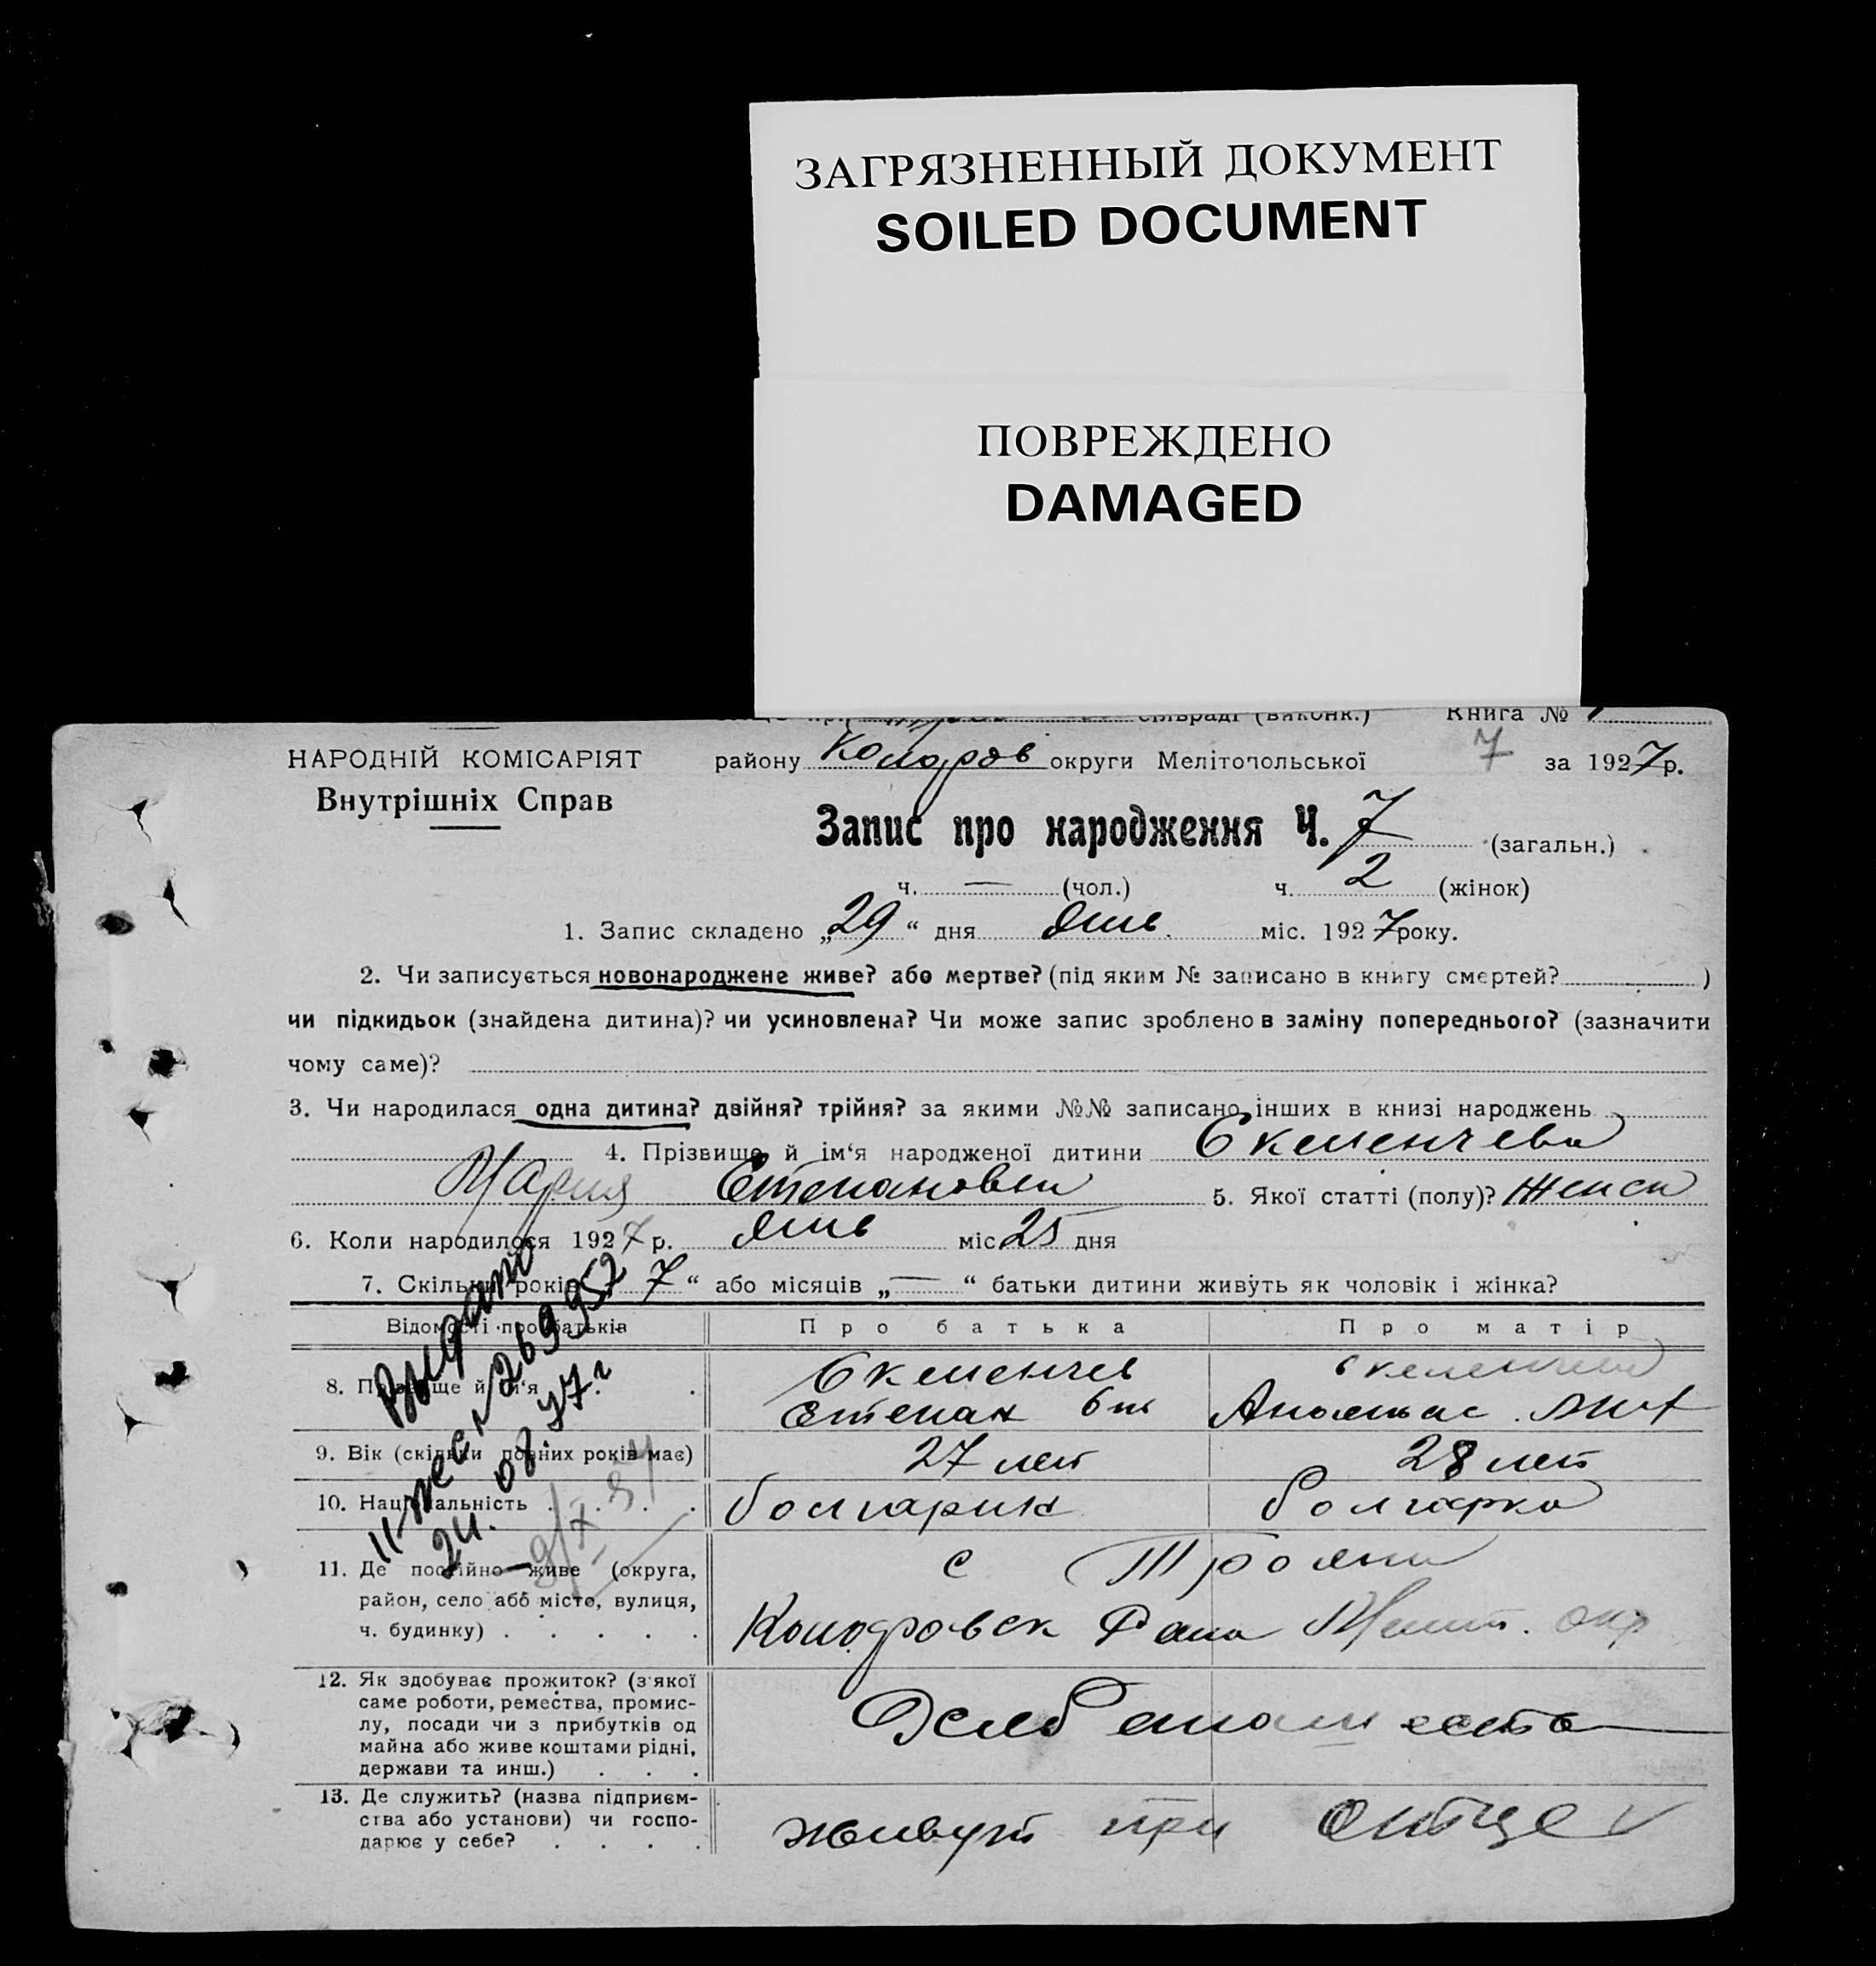 ЗАГРЯЗНЕННЫЙ ДОКУМЕНТ
SOILED DOCUMENT
ПОВРЕЖДЕНО
DAMAGED
сільраді (виконк.) Книга №
НАРОДНІЙ КОМІСАРІЯТ
Внутрішніх Справ
району Коларов округи Мелітопольської 7 за 1927р.
Запис про народження Ч. 7 (загальн.)
ч. — (чол.) ч. 2 (жінок)
1. Запис складено „29“ дня янв. міс. 1927року.
2. Чи записується новонароджене живе? або мертве? (під яким № записано в книгу смертей? )
чи підкидьок (знайдена дитина)? чи усиновлена? Чи може запис зроблено в заміну попереднього? (зазначити
чому саме)?
3. Чи народилася одна дитина? двійня? трійня? за якими №№ записано інших в книзі народжень
4. Прізвище й ім‘я народженої дитини Екеленчева
Мария Степановна 5. Якої статті (полу)? Женск
6. Коли народилося 1927р. янв міс 25 дня
7. Скільки років „7“ або місяців „—“ батьки дитини живуть як чоловік і жінка?
Відомості про батьків Про батька Про матір
8. Прізвище й ім‘я . Екеленчев Екеленчева
Степан
9. Вік (скільки повних років має) 27 лет 28 лет
10. Національність . . . . болгарин болгарка
11. Де постійно живе (округа,
район, село або місто, вулиця,
ч. будинку) . . . . .
с Трояни
Коларовск Рана Мелит. окр
12. Як здобуває прожиток? (з якої
саме роботи, ремества, промис-
лу, посади чи з прибутків од
майна або живе коштами рідні,
держави та инш.) . . .
13. Де служить? (назва підприєм-
ства або установи) чи госпо-
дарює у себе? . . . .
живут при отце
Выдано
269952
24. 08 37 г